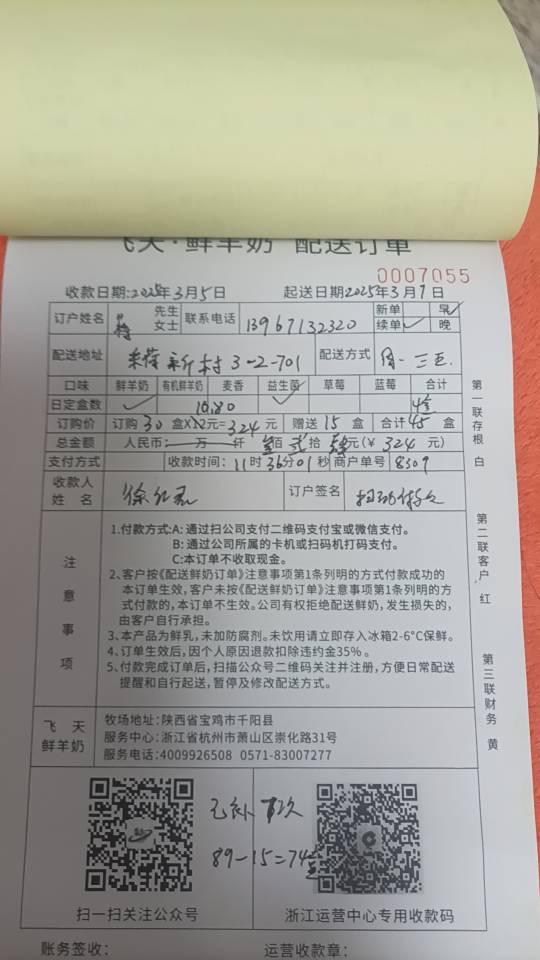 飞天·鲜羊奶 配送订单
0007055
收款日期:2025年3月5日 起送日期2025年3月7日
订户姓名 先生 女士 联系电话 13967132320 新单 早✓ 续单✓ 晚
配送地址 新村3-2-701 配送方式 周一三五
口味 鲜羊奶 有机鲜羊奶 麦香 益生菌 草莓 蓝莓 合计
日定盒数 ✓ 10.80 ✓
订购价 订购30盒X12元=324元 赠送15盒 合计45盒
总金额 人民币: 万 仟 叁佰贰拾肆元(￥324元)
支付方式 收款时间:11时36分01秒 商户单号 8509
收款人姓名 订户签名
注意事项
1.付款方式:A:通过扫公司支付二维码支付宝或微信支付。
B:通过公司所属的卡机或扫码机打码支付。
C:本订单不收取现金。
2、客户按《配送鲜奶订单》注意事项第1条列明的方式付款成功的
本订单生效,客户未按《配送鲜奶订单》注意事项第1条列明的方
式付款的,本订单不生效。公司有权拒绝配送鲜奶,发生损失的,
由客户自行承担。
3、本产品为鲜乳,未加防腐剂。未饮用请立即存入冰箱2-6°C保鲜。
4、订单生效后,因个人原因退款扣除违约金35%。
5、付款完成订单后,扫描公众号二维码关注并注册,方便日常配送
提醒和自行起送,暂停及修改配送方式。
飞天鲜羊奶
牧场地址:陕西省宝鸡市千阳县
服务中心:浙江省杭州市萧山区崇化路31号
服务电话:4009926508 0571-83007277
已补
89-15=74盒
扫一扫关注公众号 浙江运营中心专用收款码
账务签收: 运营收款章:
第一联存根 白
第二联客户 红
第三联财务 黄